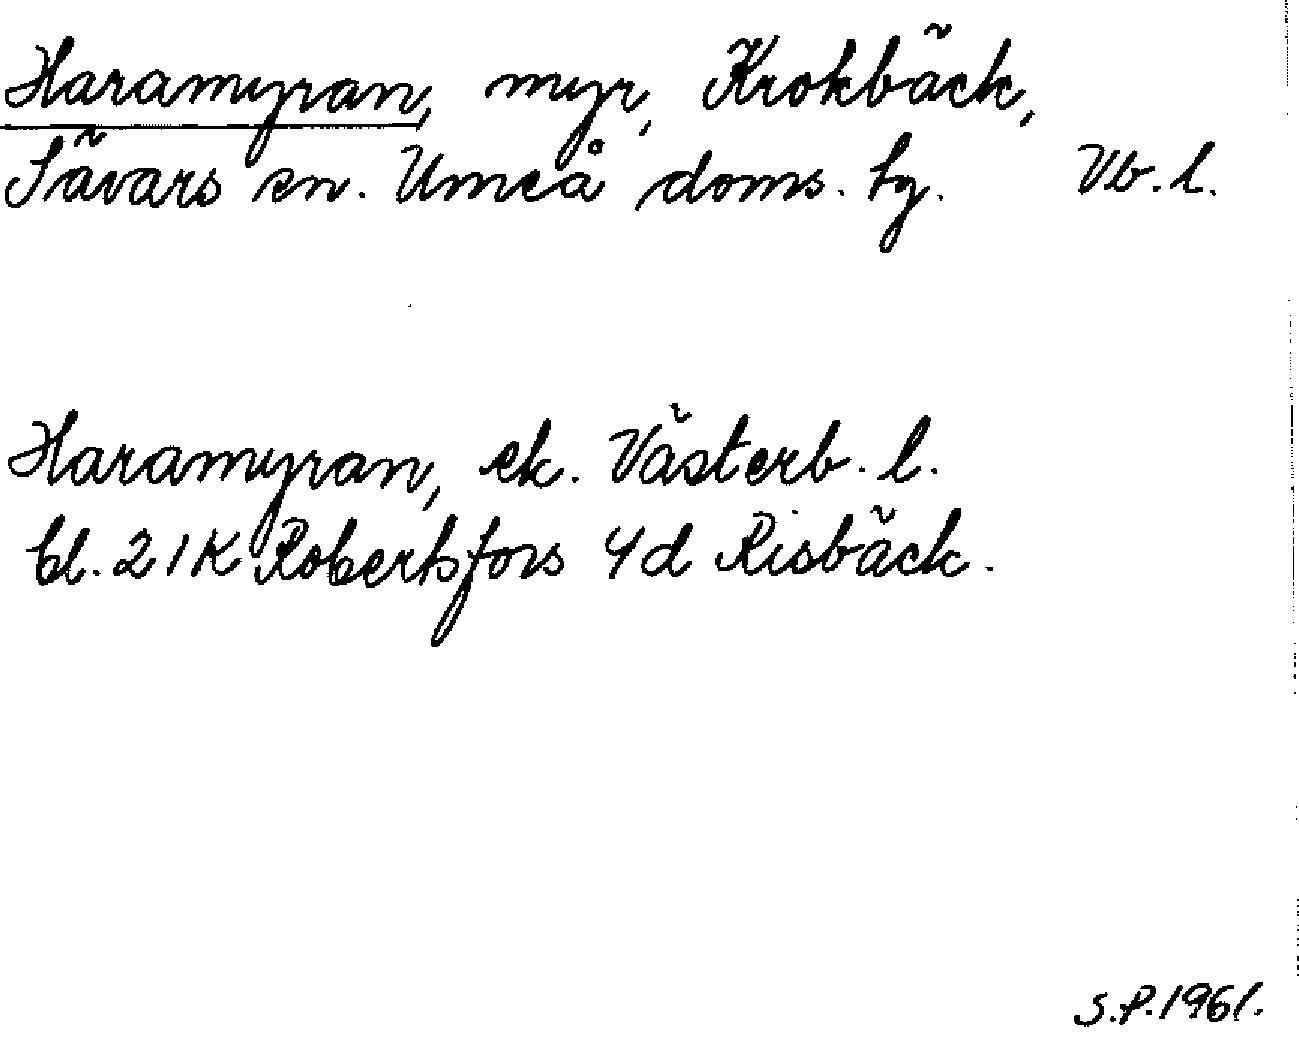 Haramyran, myr, Krokbäck,
Sävars sn. Umeå doms. tg. Vb. l.
Haramyran, ek. Västerb. l.
bl. 21K Robertsfors 4d Risbäck.
S.P. 1961.